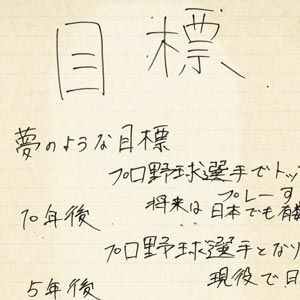 目標
夢のような目標
プロ野球選手でトッ
プレーす
10年後
将来は日本でも有数
プロ野球選手となり
現役で日
5年後